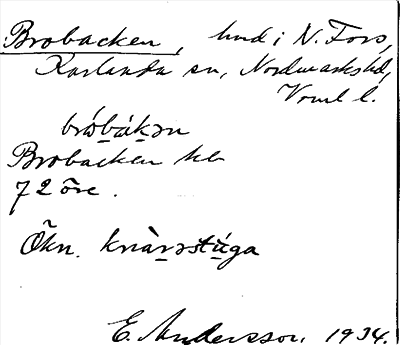 Brobacken, hmd i N. Fors,
Karlanda sn, Nordmarks hd,
Verml l.
bróbákən
Brobacken hd
72 öre.
Ökn. knàrəstúga
E. Andersson. 1934.